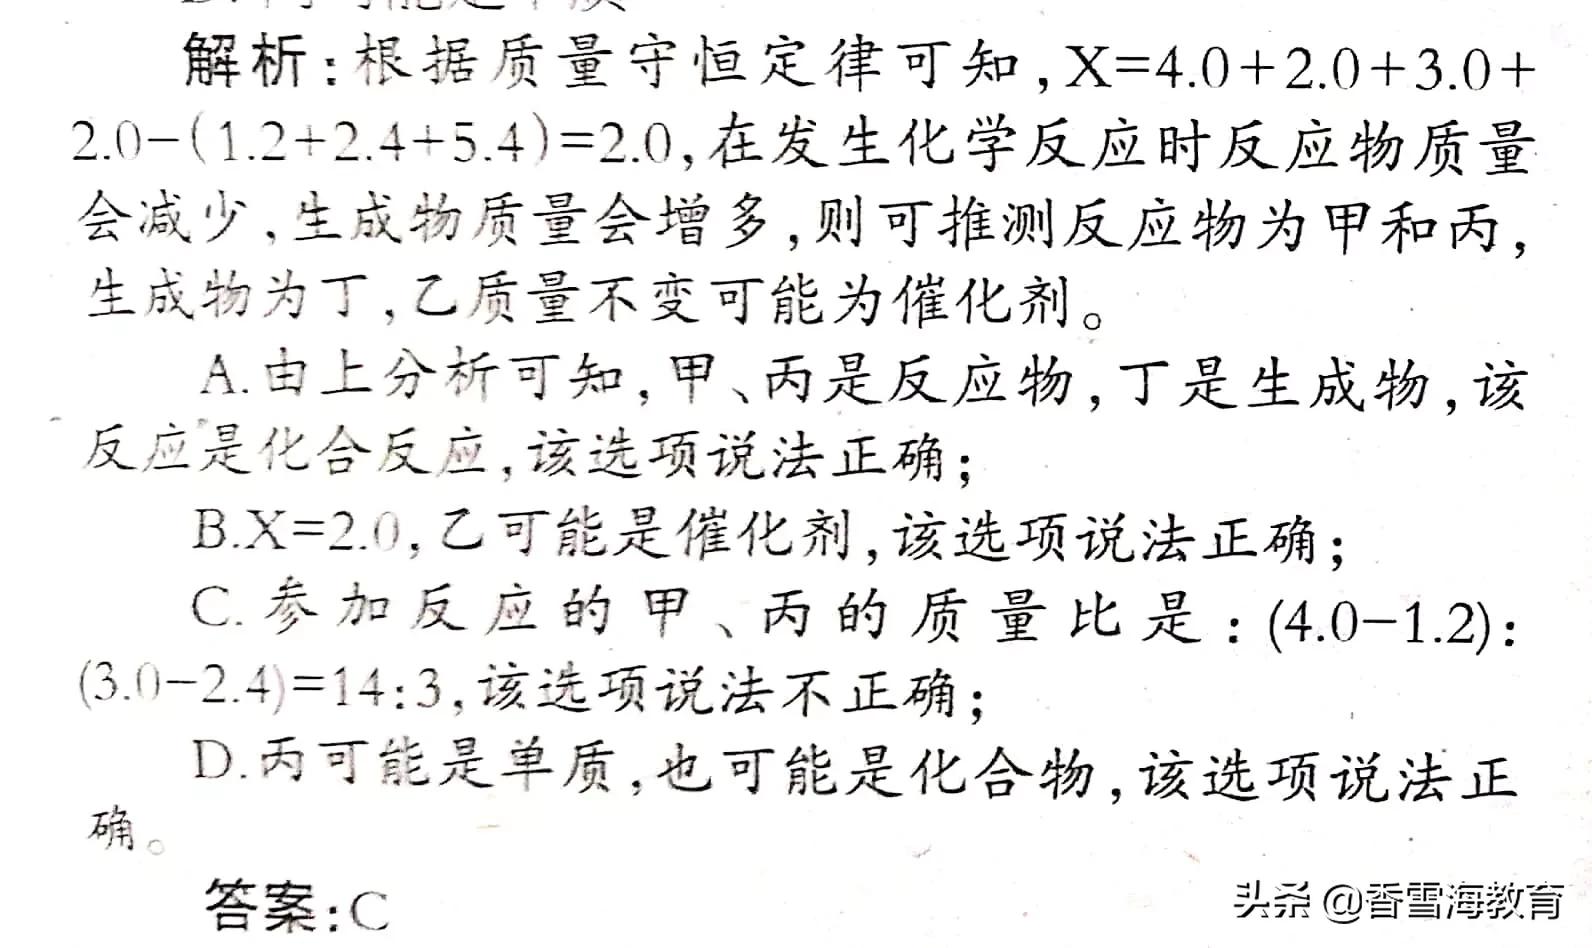 解析:根据质量守恒定律可知,X=4.0+2.0+3.0+
2.0-(1.2+2.4+5.4)=2.0,在发生化学反应时反应物质量
会减少,生成物质量会增多,则可推测反应物为甲和丙,
生成物为丁,乙质量不变可能为催化剂。
A.由上分析可知,甲、丙是反应物,丁是生成物,该
反应是化合反应,该选项说法正确;
B.X=2.0,乙可能是催化剂,该选项说法正确;
C.参加反应的甲、丙的质量比是:(4.0-1.2):
(3.0-2.4)=14:3,该选项说法不正确;
D.丙可能是单质,也可能是化合物,该选项说法正
确。
答案:C
头条@香雪海教育